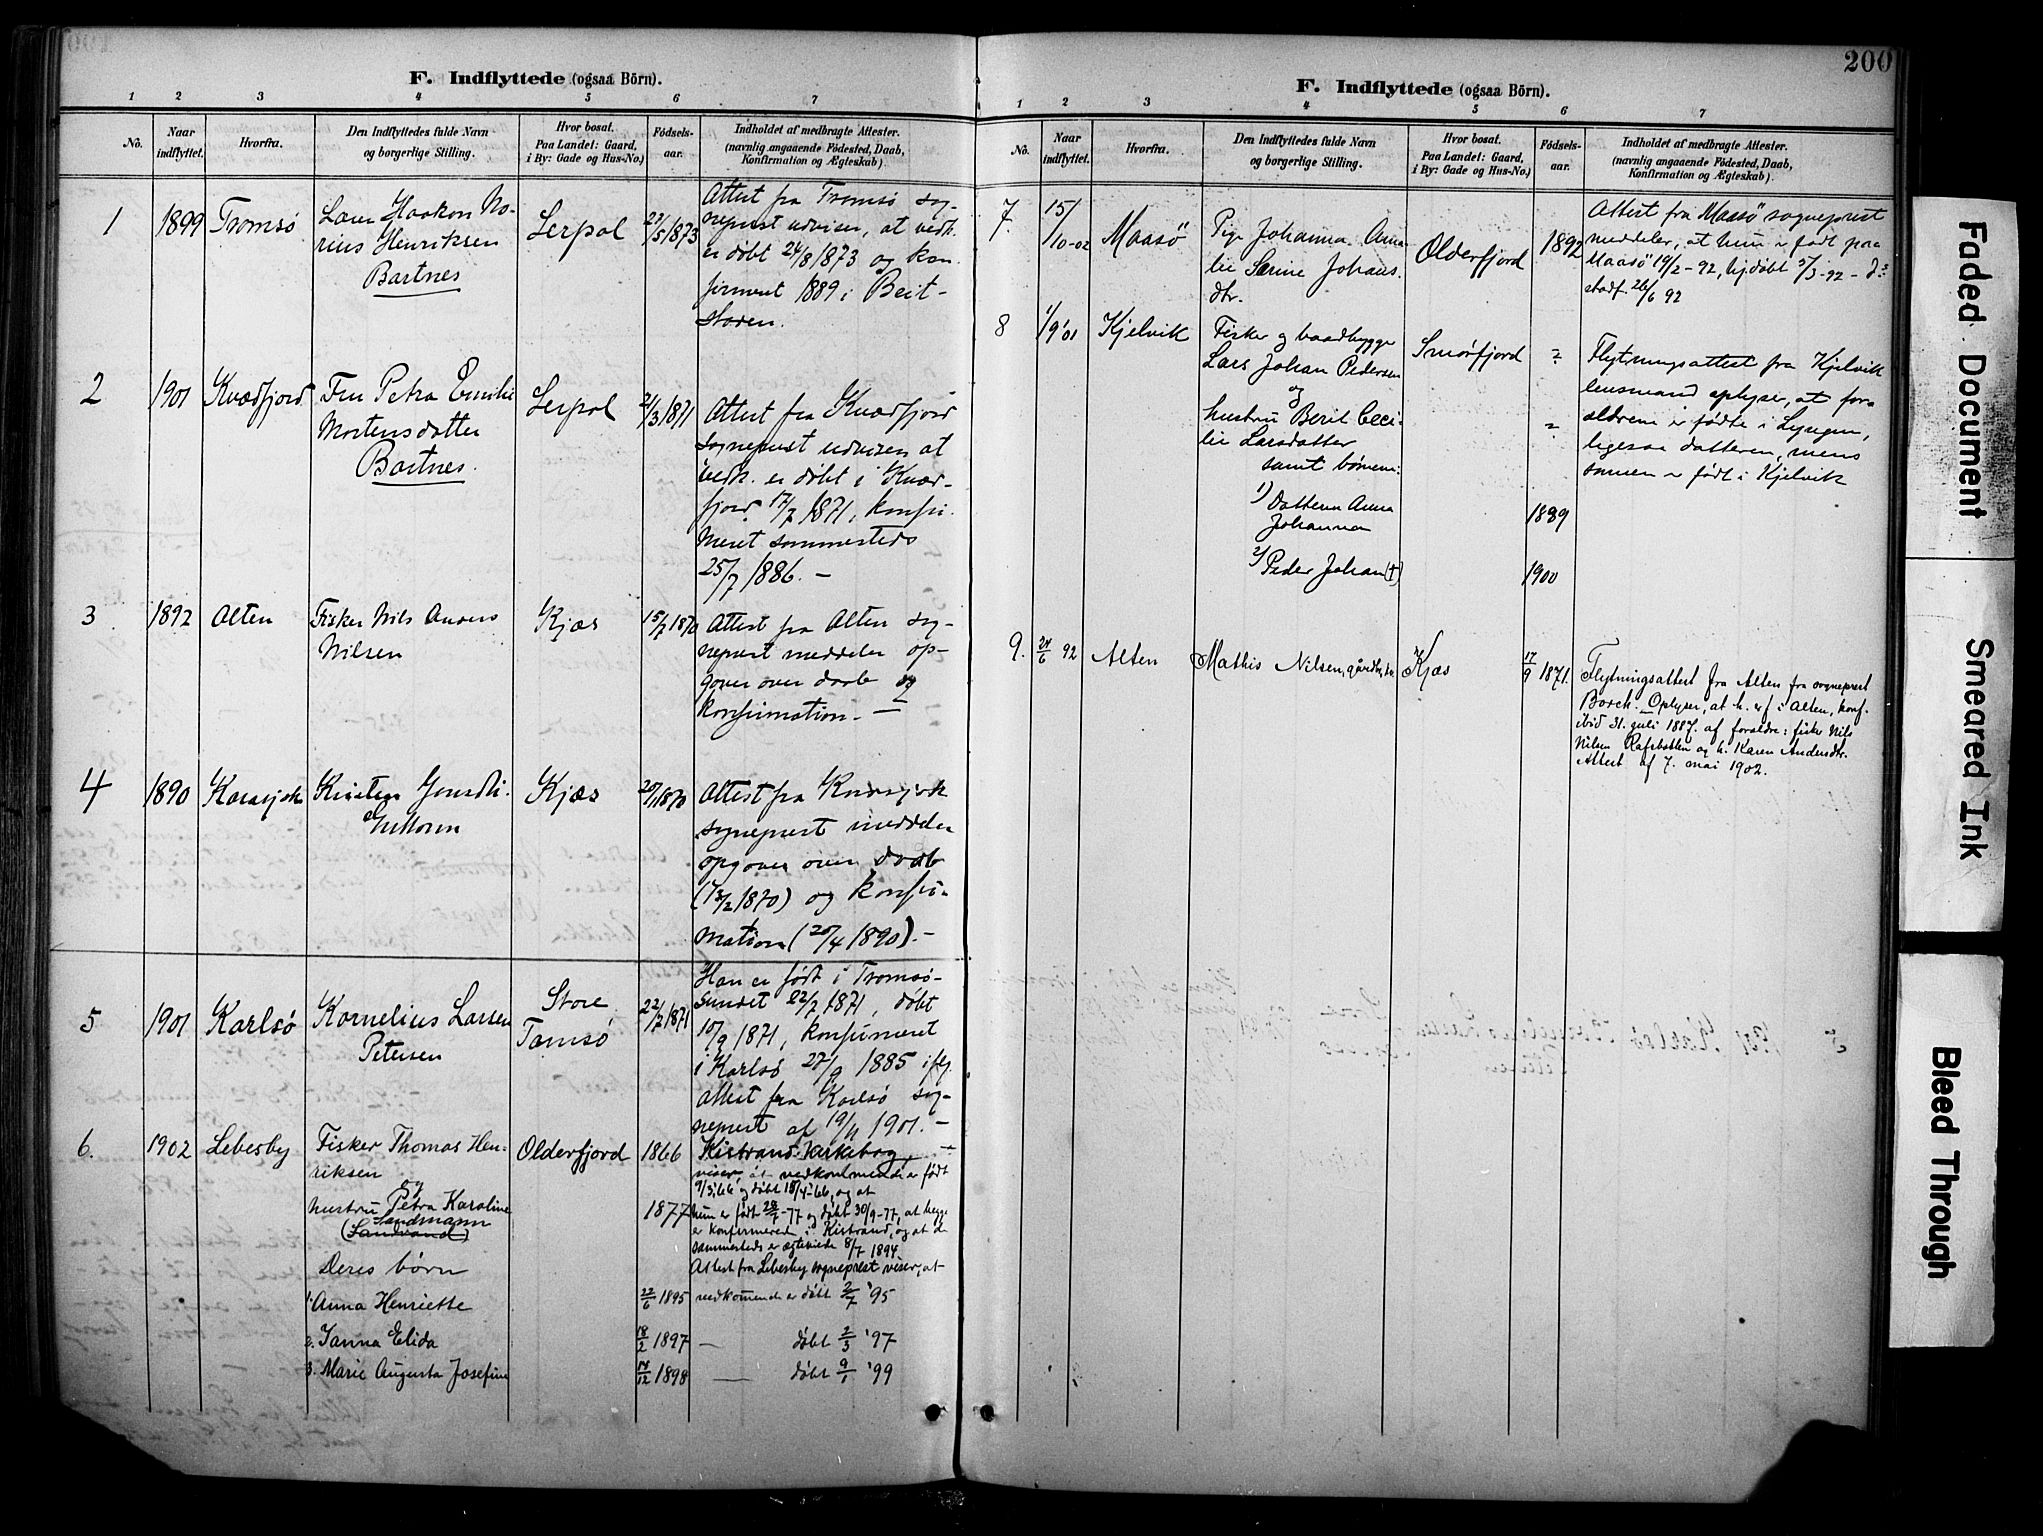 F. Indflyttede (ogsaa Börn).
1 2 3 4 5 6 7
No.
Naar
indflyttet.
Hvorfra.
Den Indflyttedes fulde Navn
og borgerlige Stilling.
Hvor bosat.
Paa Landet: Gaard,
i By: Gade og Hus-No.)
Födsels-
aar.
Indholdet af medbragte Attester.
(navnlig angaaende Födested, Daab,
Konfirmation og Ægteskab).
1 1899 Tromsö
Haakon No-
rius Henriksen
Bartnes
Lerpol
22/5 1873
Attest fra Tromsö sog-
neprest udviser, at vedk.
er döbt 24/8 1873 og kon-
firmeret 1889 i Beit-
staden.
2 1901 Kvædfjord
Fru Petra Emilie
Mortensdatter
Bartnes.
Lerpol
2/3 1871
Attest fra Kvædfjord
sogneprest udviser at
vedk. er döbt i Kvæd-
fjord 17/7 1871, konfir-
meret sammesteds
25/7 1886. –
3 1892 Alten
Fisker Nils Anders
Nilsen
Kjæs
15/7 1870
Attest fra Alten sog-
neprest meddeler op-
gaver over daab og
konfirmation. –
4 1890 Karasjok
Kirsten
Kjæs
20/1 1870
Attest fra Karasjok
sogneprest meddeler
opgaver over daab
(13/2 1870) og konfir-
mation (20/4 1890). –
5 1901 Karlsö
Kornelius Larsen
Petersen
Store
Tamsö
22/7 1871
Han er född i Tromsö-
sundet 22/7 1871, döbt
10/9 1871, konfirmeret
i Karlsö 27/9 1885 iflg.
attest fra Karlsö sog-
neprest af 19/11 1901. –
6. 1902 Lebesby
Fisker Thomas Hen-
riksen
og
hustru Petra Karoline
Sandmann
(Sandvand)
Deres börn
1. Anna Henriette
2. Janna Elida
3. Marie Augusta Josefine
Olderfjord
1866
1877
22/6 1895
18/2 1897
14/12 1898
Kistrand Kirkebog
viser, at vedkommende er födt
9/3 66, og döbt 15/4-66, og at
hun er födt 28/7-77 og döbt 30/9-77, at begge
er konfirmered i Kistrand, og at de
sammesteds er ægteviede 8/7 1894
Attest fra Lebesby sogneprest viser, at
vedkommende er döbt 2/7 '95
— döbt 2/3 '97
— döbt 9/1 '99
200
F. Indflyttede (ogsaa Börn).
1 2 3 4 5 6 7
No.
Naar
indflyttet.
Hvorfra.
Den Indflyttedes fulde Navn
og borgerlige Stilling.
Hvor bosat.
Paa Landet: Gaard,
i By: Gade og Hus-No.)
Födsels-
aar.
Indholdet af medbragte Attester.
(navnlig angaaende Födested, Daab,
Konfirmation og Ægteskab).
7. 15/10-02 Maasö
Pige Johanna Ama-
lie Serine Johans-
dtr.
Olderfjord
1892
Attest fra Maasö sogneprest
meddeler, at hun er född paa
Maasö 19/2-92, hjdöbt 5/3-92 –
stadf. 26/6 92
8 1/9 '01 Kjelvik
Fisker og baadbygge
Lars Johan Pedersen
og
hustru Berit Ceci-
lie Larsdatter
samt börnene:
1) Datteren Anna
Johanna
2) Peder Johan (†)
Smörfjord
?
?
1889
1900
Flytningsattest fra Kjelvik
lensmand oplyser, at for-
ældrene er födte i Lyngen,
ligesaa datteren, mens
sönnen er född i Kjelvik
9. 24/6 92 Alten
Mathis Nilsen,
Kjæs
17/9 1871.
Flytningsattest fra Alten fra sogneprest
Borch. Oplyser, at h. er f. i Alten, konf.
ibid 31. juli 1887. af forældre: fisker Nils
Nilsen Rafsbotten og h. Karen Andersdtr.
Attest af 7. mai 1902.
Faded Document
Smeared Ink
Bleed Through